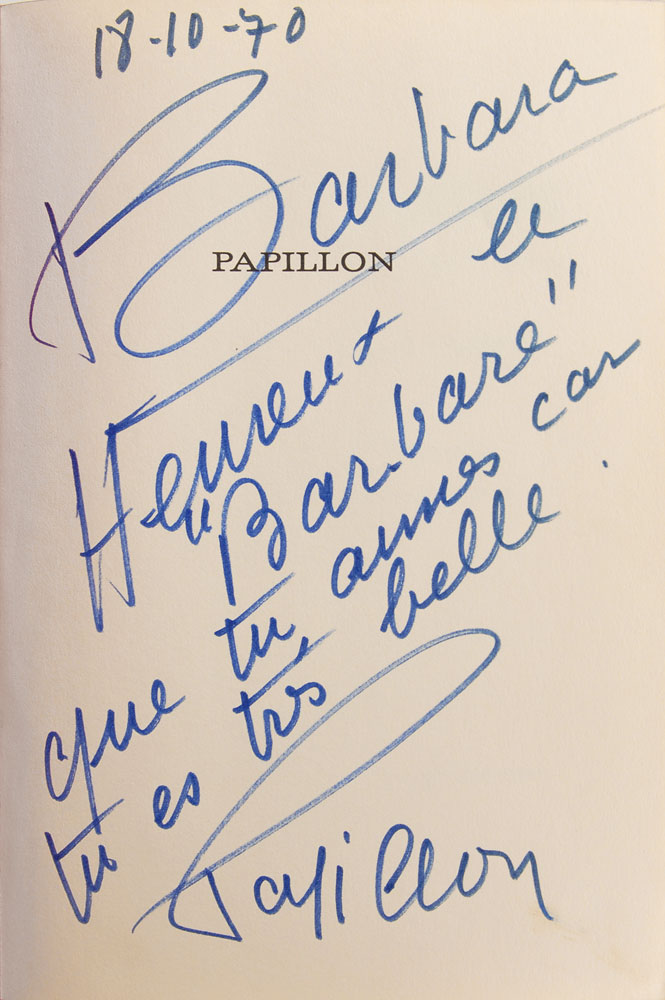 18-10-70
Barbara
PAPILLON
Heureux le
"Barbare"
que tu aimes car
tu es très belle.
Papillon